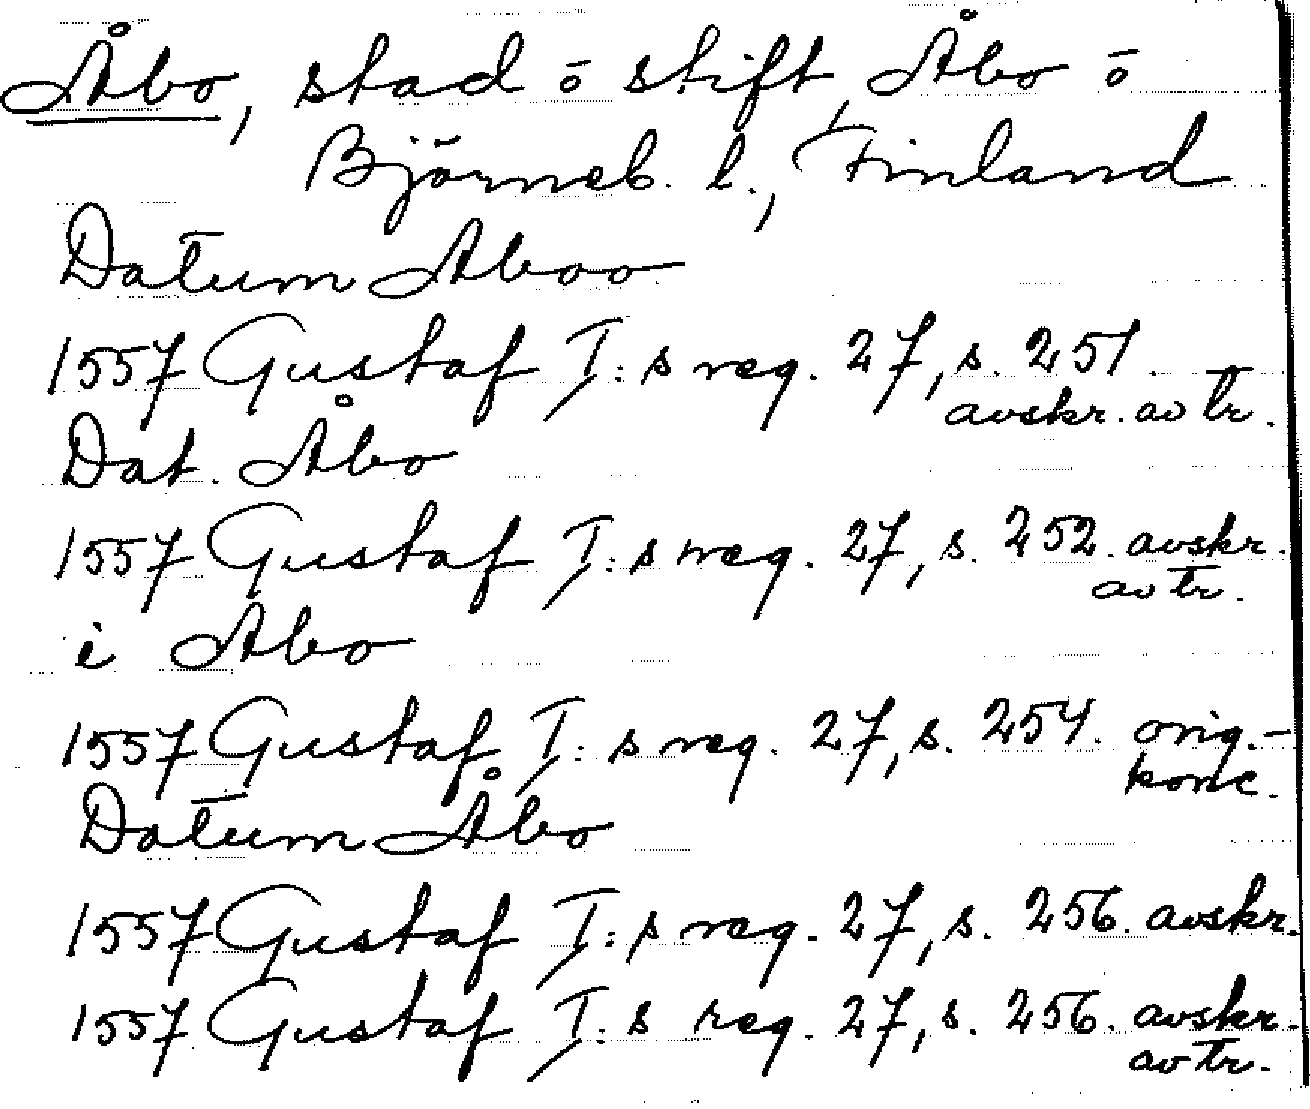 Åbo, stad ō stift, Åbo ō
Björneb. l., Finland
Datum Aboo
1557 Gustaf I:s reg. 27, s. 251.
avskr. av tr.
Dat. Åbo
1557 Gustaf I:s reg. 27, s. 252. avskr.
av tr.
i Abo
1557 Gustaf I:s reg. 27, s. 254. orig.-
konc.
Datum Åbo
1557 Gustaf I:s reg. 27, s. 256. avskr.
1557 Gustaf I:s reg. 27, s. 256. avskr.
av tr.